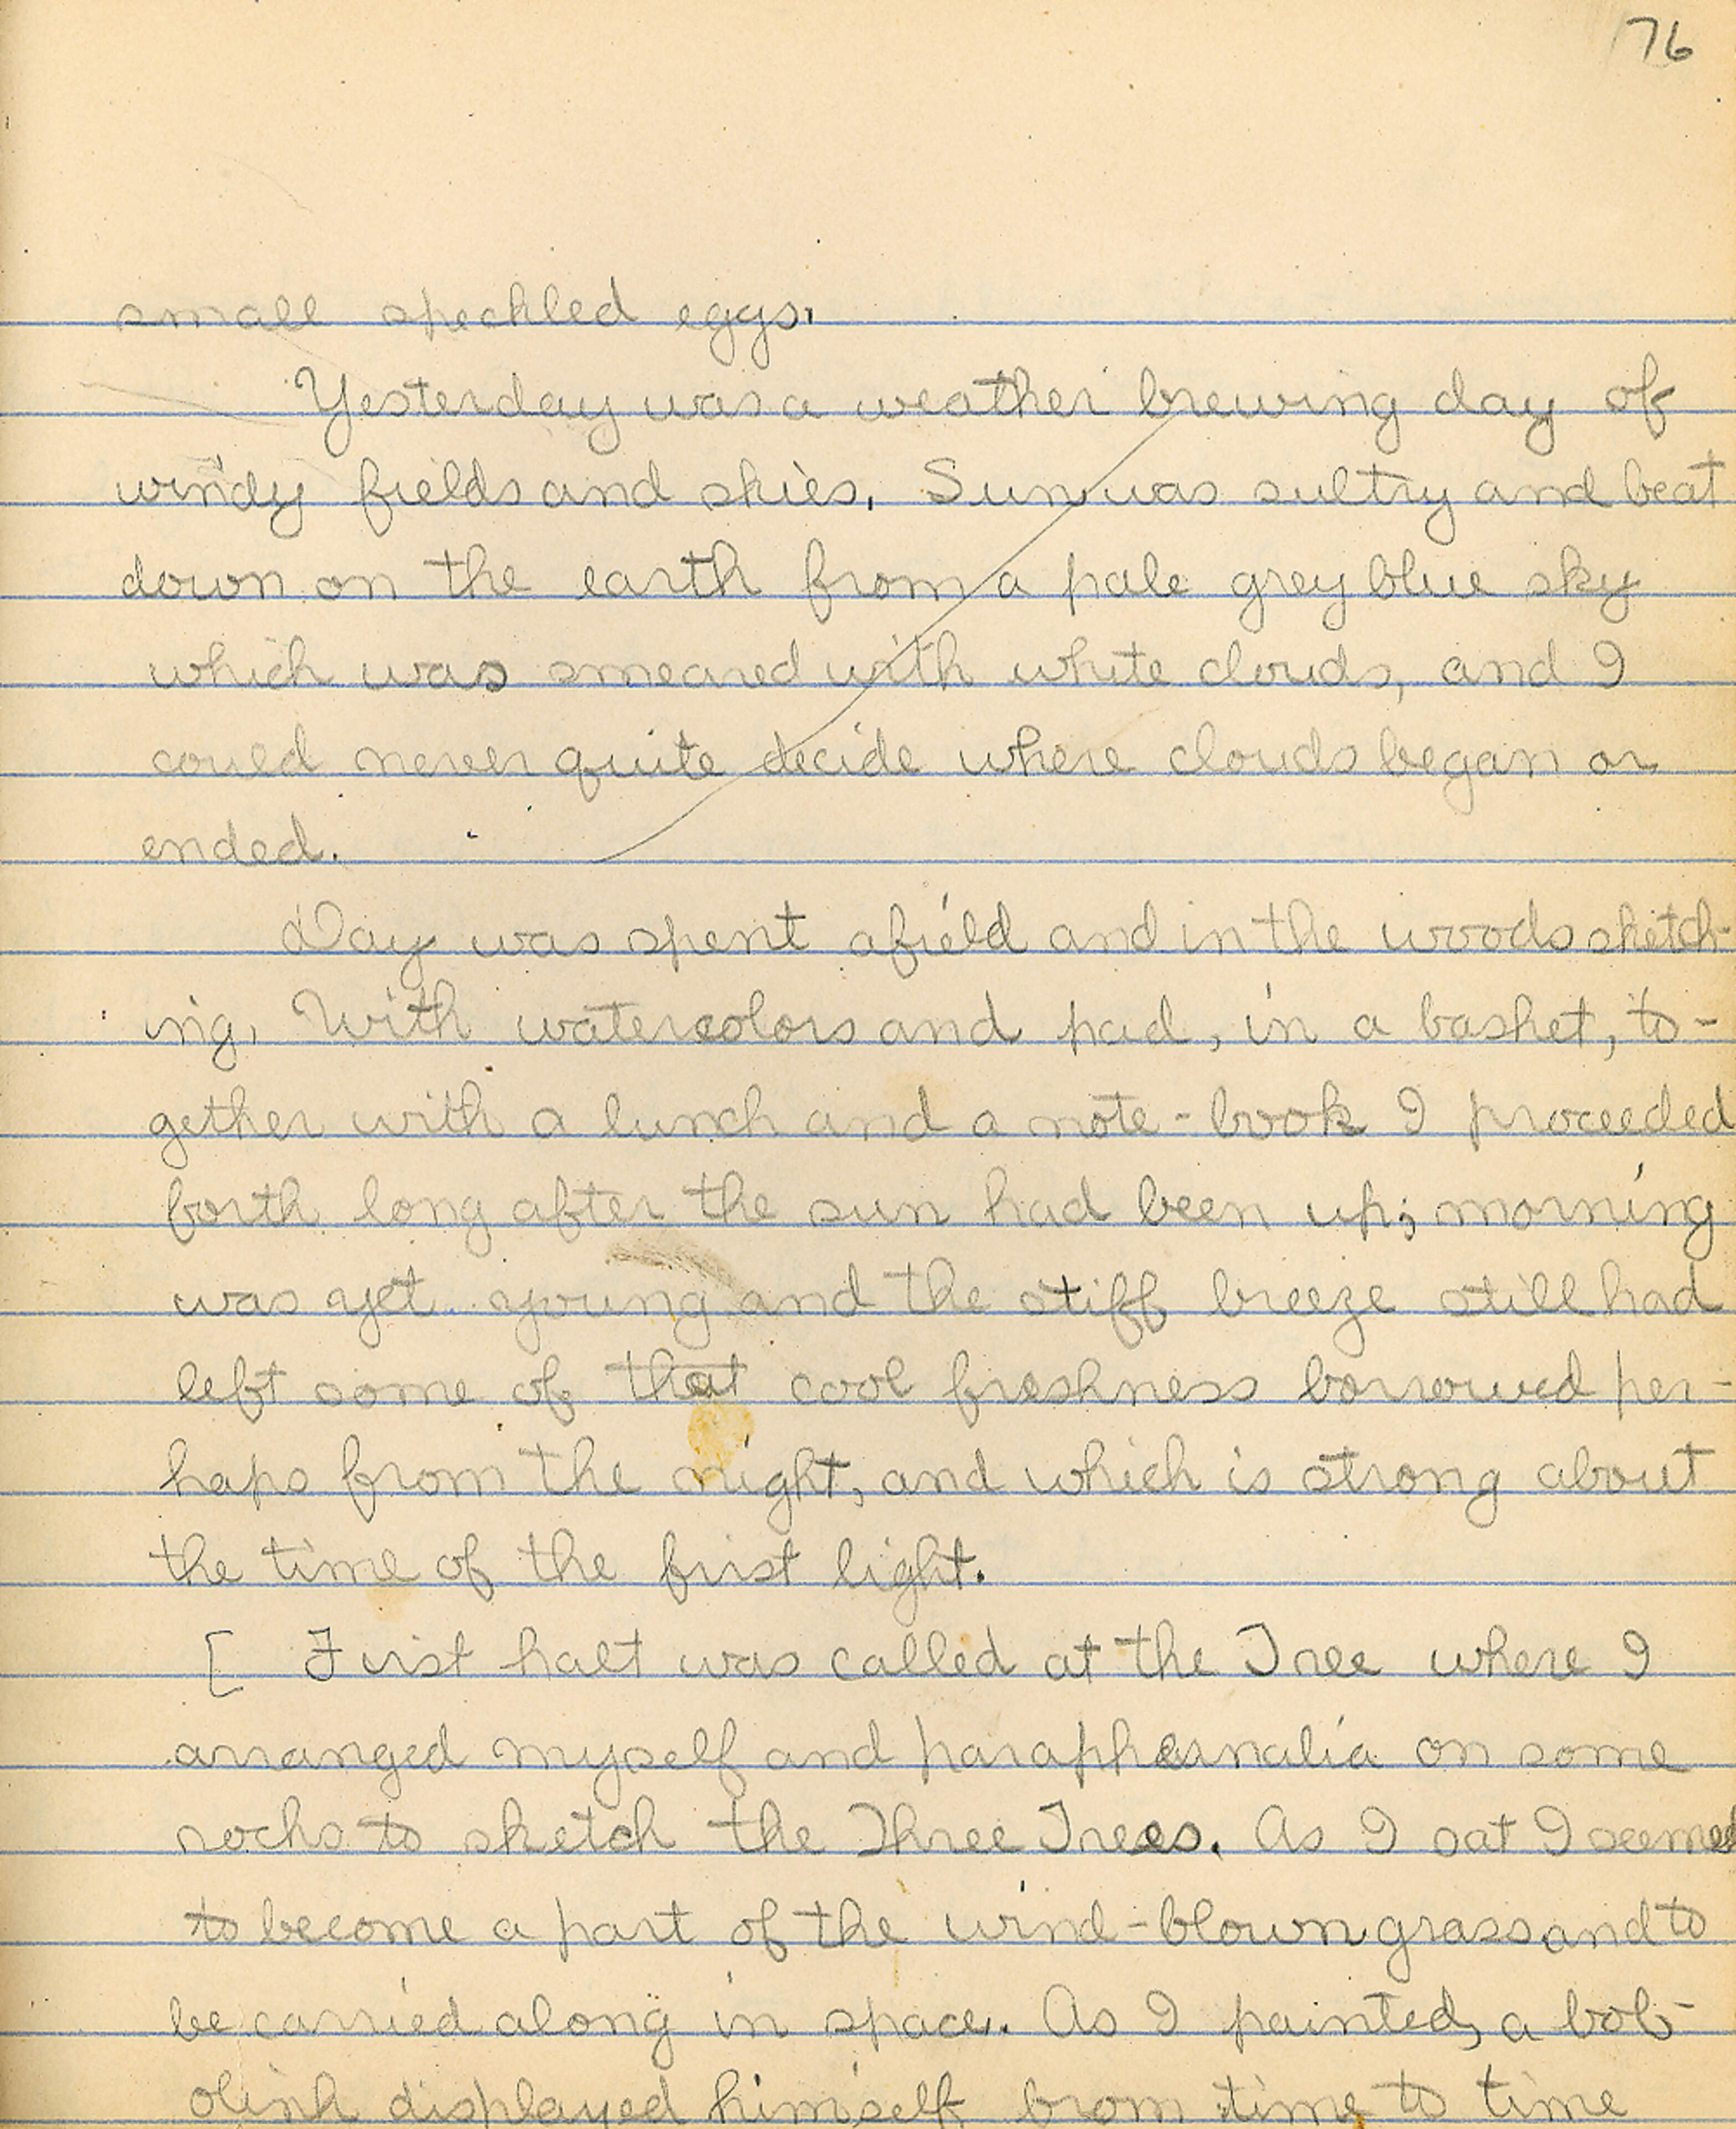 76
small speckled eggs.
Yesterday was a weather brewing day of
windy fields and skies. Sun was sultry and beat
down on the earth from a pale grey blue sky
which was smeared with white clouds, and I
could never quite decide where clouds began or
ended.
Day was spent afield and in the woods sketch-
ing. With watercolors and pad, in a basket, to-
gether with a lunch and a note-book I proceeded
forth long after the sun had been up; morning
was yet young and the stiff breeze still had
left some of that cool freshness borrowed per-
haps from the night, and which is strong about
the time of the first light.
[ First halt was called at the Tree where I
arranged myself and paraphernalia on some
rocks to sketch the Three Trees. As I sat I seemed
to become a part of the wind-blown grass and to
be carried along in space. As I painted, a bob-
olink displayed himself from time to time